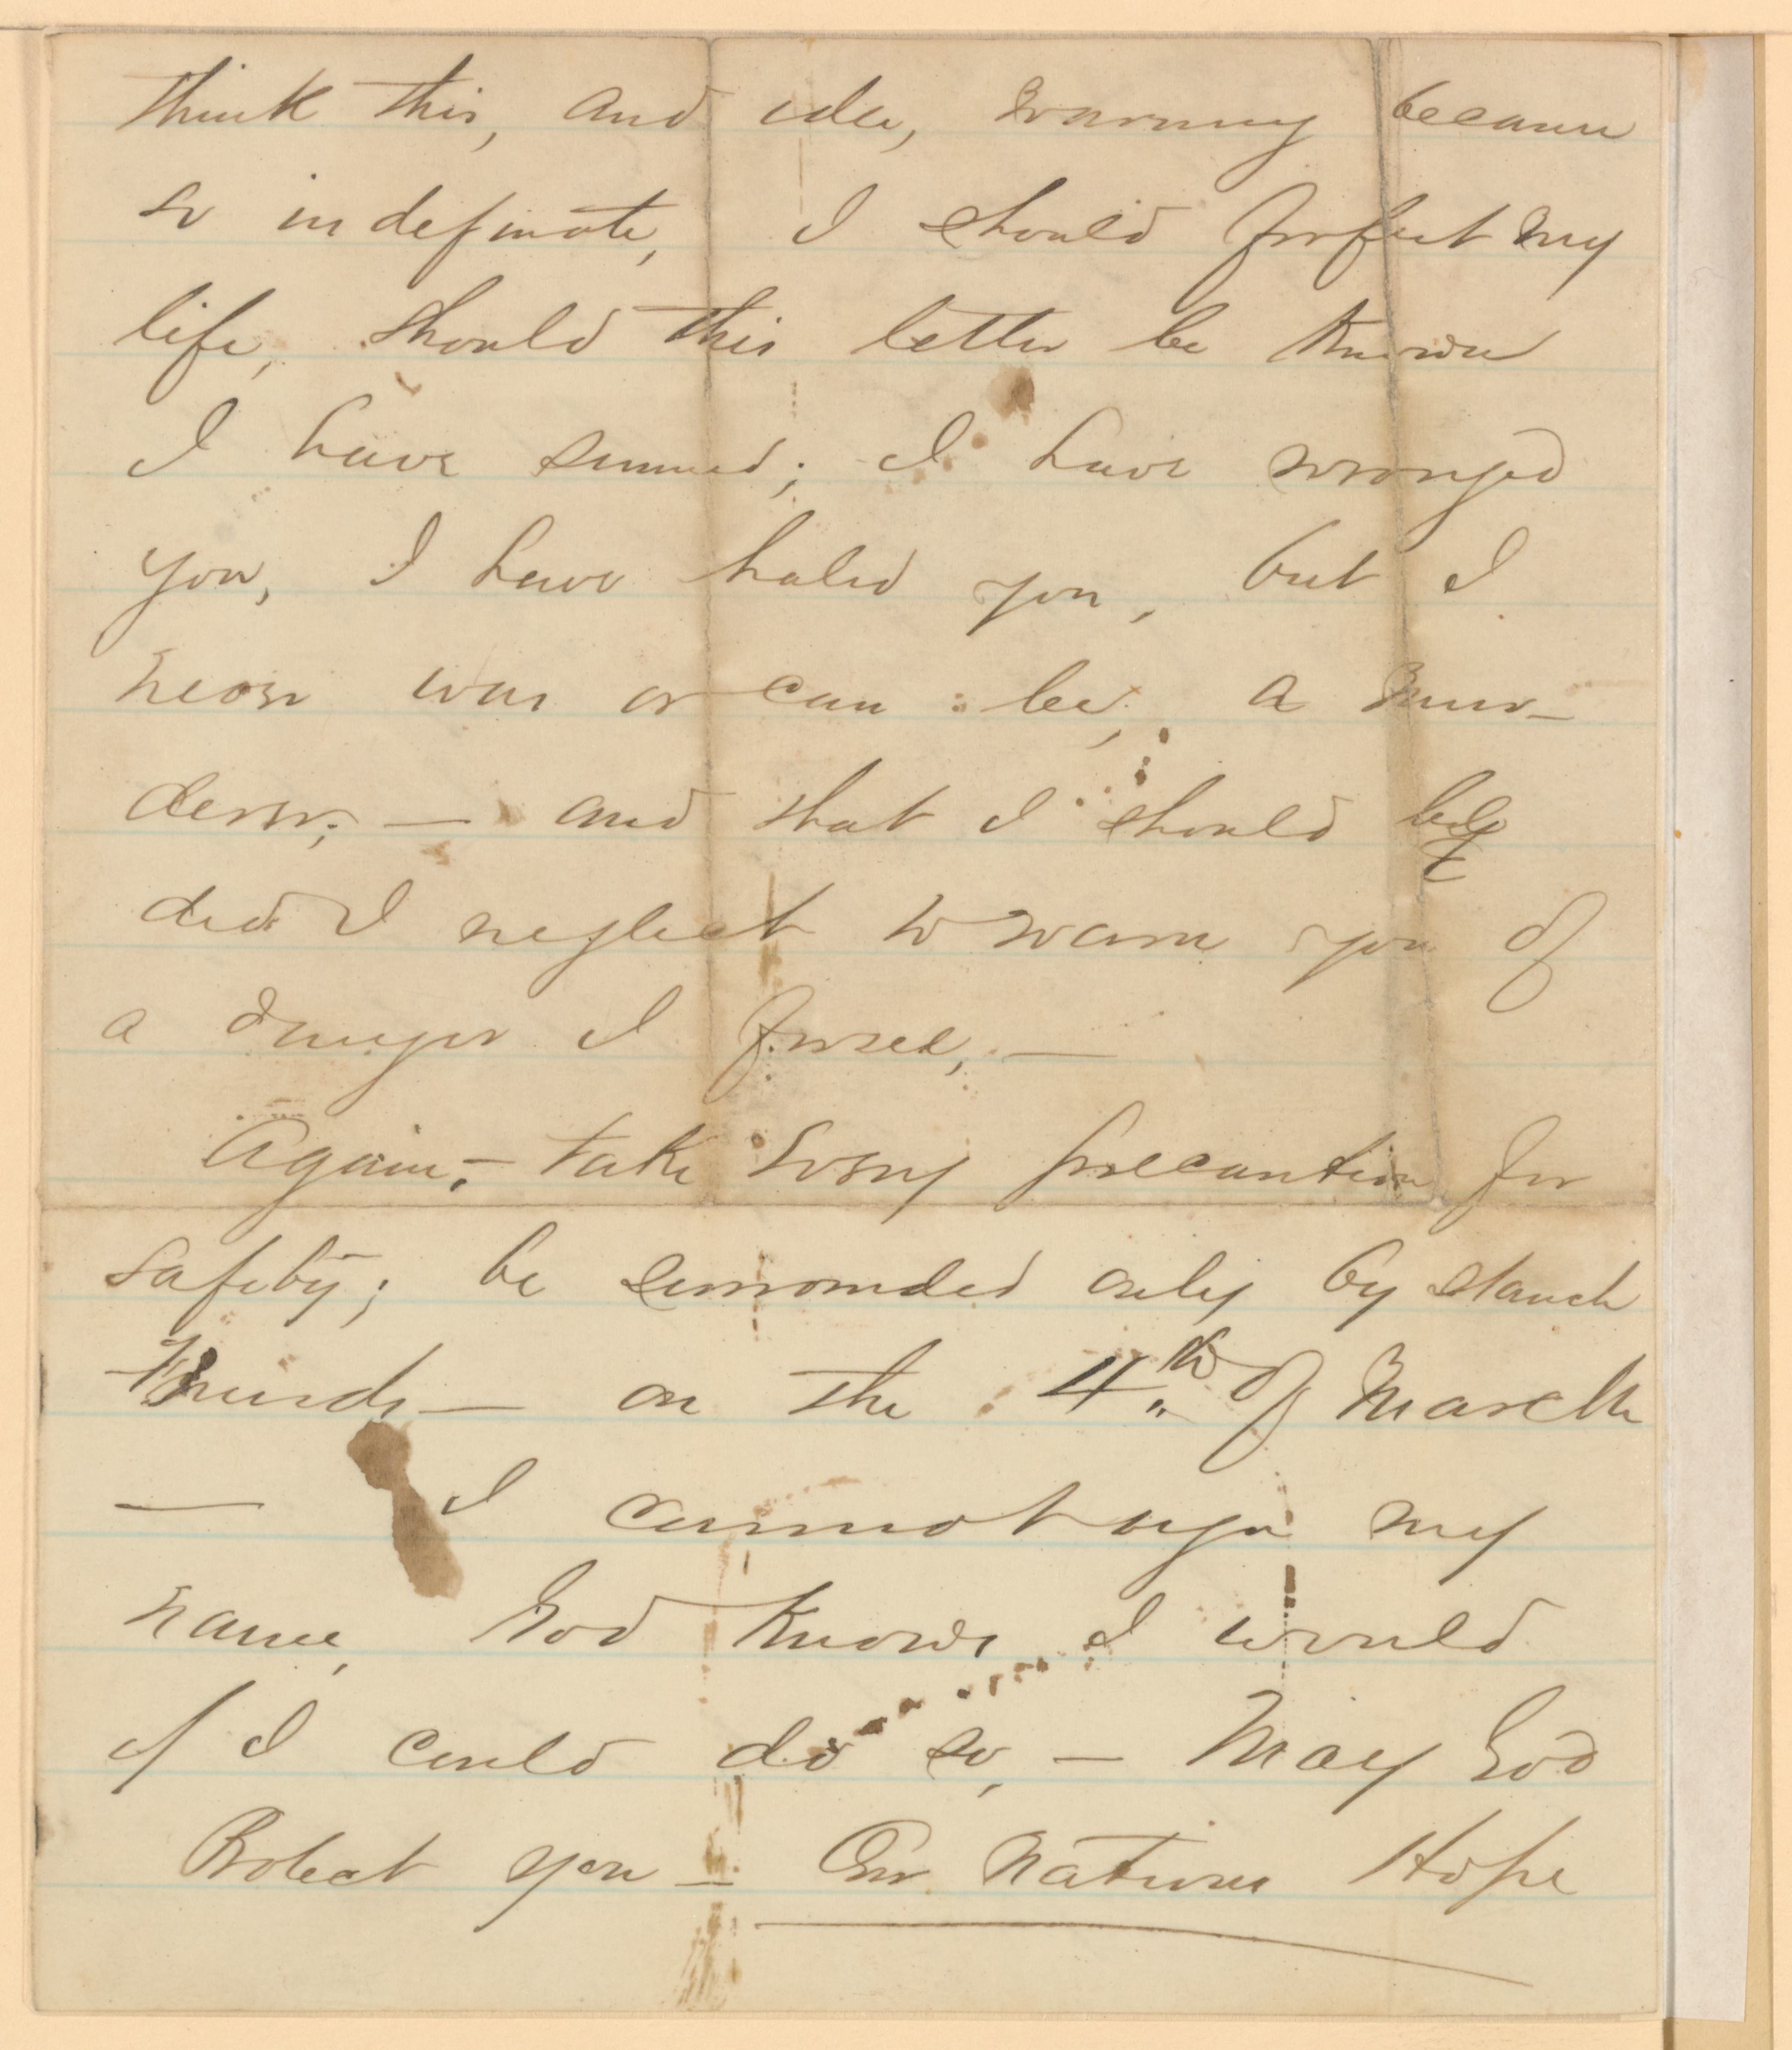 think this, and idle, warning because
so indefinate, I should forfeit my
life, should this letter be known
I have sinned; I have wronged
you, I have hated you, but I
never was or can be, a mur-
derer; — and that I should be
did I neglect to warn you of
a danger I forsee, —
Again, — take every precaution for
safety; be surrounded only by stanch
Friends — on the 4th of March
— I cannot sign my
name, God knows I would
if I could do so, — May God
Protect you — Our Nations Hope